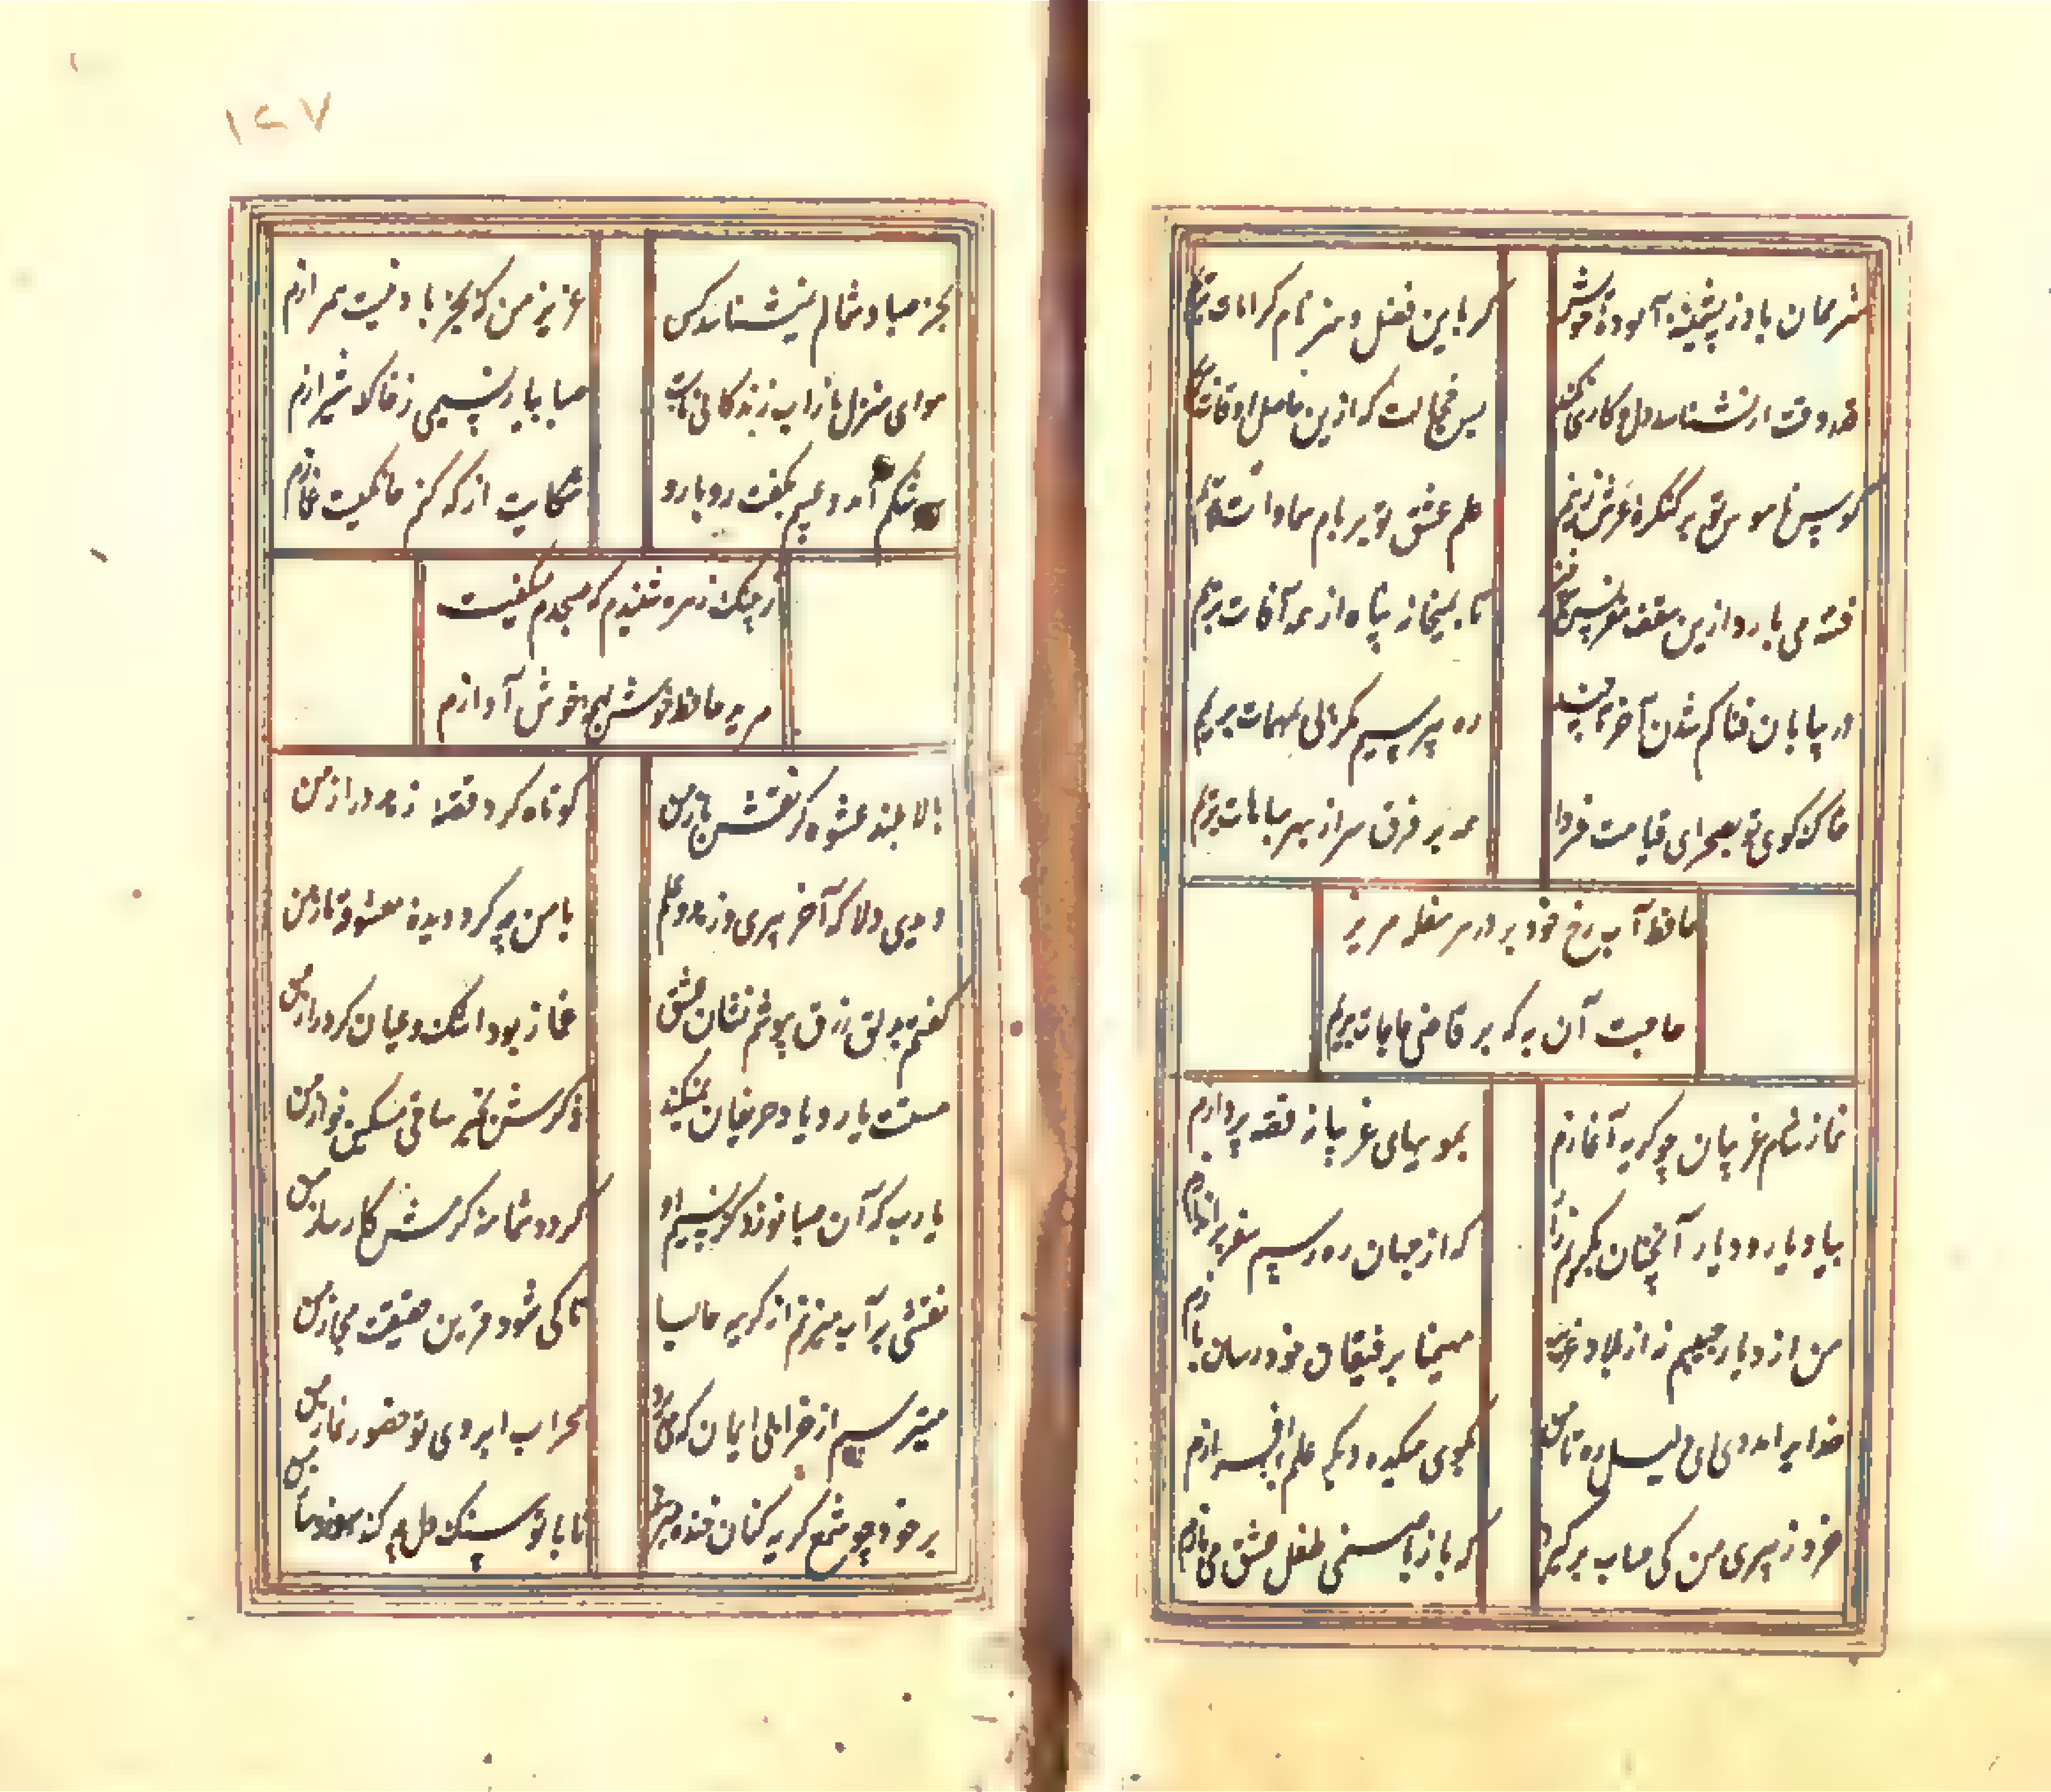 شرممان باد ز پشمینه آلوده خویش
کر باین فضل و هنر نام کرامات بریم
قدر وقت ار نشناسد دل و کاری نکند
بس خجالت که ازین حاصل اوقات بریم
کوس ناموس تو بر کنکره عرش زنیم
علم عشق تو بر بام سماوات بریم
فتنه می بارد ازین سقف مقرنس برخیز
تا بمیخانه پناه از همه آفات بریم
در بیابان فنا کم شدن آخر تا چند
ره بپرسیم مکر پی بمهمات بریم
خاک کوی تو بصحرای قیامت فردا
همه بر فرق سر از بهر مباهات بریم
حافظ آب رخ خود بر در هر سفله مریز
حاجت آن به که بر قاضی حاجات بریم
نماز شام غریبان چو کریه آغازم
بمویهای غریبانه قصه پردازم
بیاد یار و دیار آنچنان بکریم زار
که از جهان ره و رسم سفر براندازم
من از دیار حبیبم نه از بلاد غریب
مهیمنا برفیقان خود رسان بازم
خدایرا مددی ای دلیل ره تا من
بکوی میکده دیکر علم برافرازم
خرد ز پیری من کی حساب برکیرد
که باز با صنمی طفل عشق می بازم
۱۲۷
بجز صبا و شمالم نمیشناسد کس
عزیز من که بجز باد نیست همرازم
هوای منزل یار آب زندکانی ماست
صبا بیار نسیمی ز خاک شیرازم
سرشکم آمد و عیبم بکفت رو بارو
شکایت از که کنم خانکیست غمازم
ز چنک زهره شنیدم که صبحدم میکفت
مرید حافظ خوش لهجه خوش آوازم
بالا بلند عشوه کر نقش باز من
کوتاه کرد قصه زهد دراز من
دیدی دلا که آخر پیری و زهد و علم
با من چه کرد دیده معشوقه باز من
کفتم بدلق زرق بپوشم نشان عشق
غماز بود اشک و عیان کرد راز من
مستست یار و یاد حریفان نمیکند
ذکرش بخیر ساقی مسکین نواز من
یارب که آن صبا بوزد کز نسیم او
کردد شمامه کرمش کارساز من
نقشی بر آب میزنم از کریه حالیا
تا کی شود قرین حقیقت مجاز من
میترسم از خرابی ایمان که می برد
محراب ابروی تو حضور نماز من
بر خود چو شمع کریه کنان خنده میزنم
تا با تو سنک دل چه کند سوز و ساز من